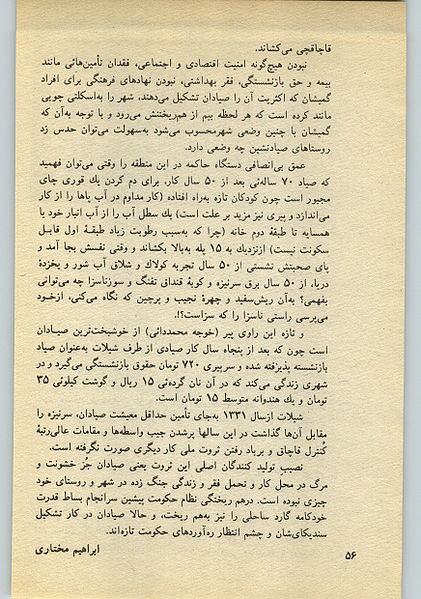 قاچاقچی می‌کشاند.
نبودن هیچ‌گونه امنیت اقتصادی و اجتماعی، فقدان تأمین‌هائی مانند
بیمه و حق بازنشستگی، فقر بهداشتی، نبودن نهادهای فرهنگی برای افراد
گمیشان که اکثریت آن را صیادان تشکیل می‌دهند، شهر را به‌اسکلتی چوبی
مانند کرده است که هر لحظه بیم از هم‌ریختنش می‌رود و با توجه به‌آن که
گمیشان با چنین وضعی شهرمحسوب می‌شود به‌سهولت می‌توان حدس زد
روستاهای صیادنشین چه وضعی دارد.
عمق بی‌انصافی دستگاه حاکمه در این منطقه را وقتی می‌توان فهمید
که صیاد ۷۰ ساله‌ئی بعد از ۵۰ سال کار، برای دم کردن یك قوری چای
مجبور است چون کودکان تازه به‌راه افتاده (کار مداوم در آب پاها را از کار
می‌اندازد و پیری نیز مزید بر علت است) یك سطل آب را از آب انبار خود یا
همسایه تا طبقهٔ دوم خانه (چرا که به‌سبب رطوبت زیاد طبقهٔ اول قابل
سکونت نیست) ازنزدیك به ۱۵ پله به‌بالا بکشاند و وقتی نفسش بجا آمد و
پای صحبتش نشستی از ۵۰ سال تجربه کولاك و شلاق آب شور و یخ‌زدهٔ
دریا، از ۵۰ سال برق سرنیزه و کوبهٔ قنداق تفنگ و سوزناسزا چه می‌توانی
بفهمی؟ به‌آن ریش‌سفید و چهرهٔ نجیب و پرچین که نگاه می‌کنی، ازخـود
می‌پرسی راستی ناسزا را که سزاست؟!.
و تازه این راوی پیر (خوجه محمددائی) از خوشبخت‌ترین صیـادان
است چون که بعد از پنجاه سال کار صیادی از طرف شیلات به‌عنوان صیاد
بازنشسته پذیرفته شده و سرپیری ۷۲۰ تومان حقوق بازنشستگی می‌گیرد و در
شهری زندگی می‌کند که در آن نان گرده‌ئی ۱۵ ریال و گوشت کیلوئی ۳۵
تومان و یك هندوانه متوسط ۱۵ تومان است.
شیلات ازسال ۱۳۳۱ به‌جای تأمین حداقل معیشت صیادان، سرنیزه را
مقابل آن‌ها گذاشت در این سالها پرشدن جیب واسطه‌ها و مقامات عالی‌رتبهٔ
کُنترل قاچاق و برباد رفتن ثروت ملی کار دیگری صورت نگرفته است.
نصیب تولید کنندگان اصلی این ثروت یعنی صیادان جُز خشونت و
مرگ در محل کار و تحمل فقر و زندگی جنگ زده در شهر و روستای خود
چیزی نبوده است. درهم ریختگی نظام حکومت پیشین سرانجام بساط قدرت
خودکامه گارد ساحلی را نیز به‌هم ریخت، و حالا صیادان در کار تشکیل
سندیکای‌شان و چشم انتظار ره‌آوردهای حکومت تازه‌اند.
ابراهیم مختاری
۵۶